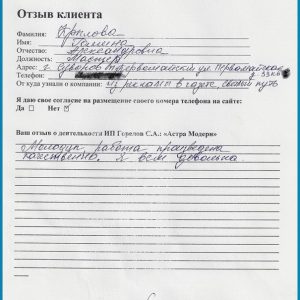 Отзыв клиента
Фамилия: Крылова
Имя: Галина
Отчество: Александровна
Должность: Мастер
Адрес: г. Суворов п. Первомайский ул. Первомайская
Телефон:
От куда узнали о компании: из рекламы в газете, свет. путь
Я даю свое согласие на размещение своего номера телефона на сайте:
Да □ Нет ☑
Ваш отзыв о деятельности ИП Горелов С.А.: «Астра Модерн»
Молодцы, работа произведена
качественно. Я всем довольна.